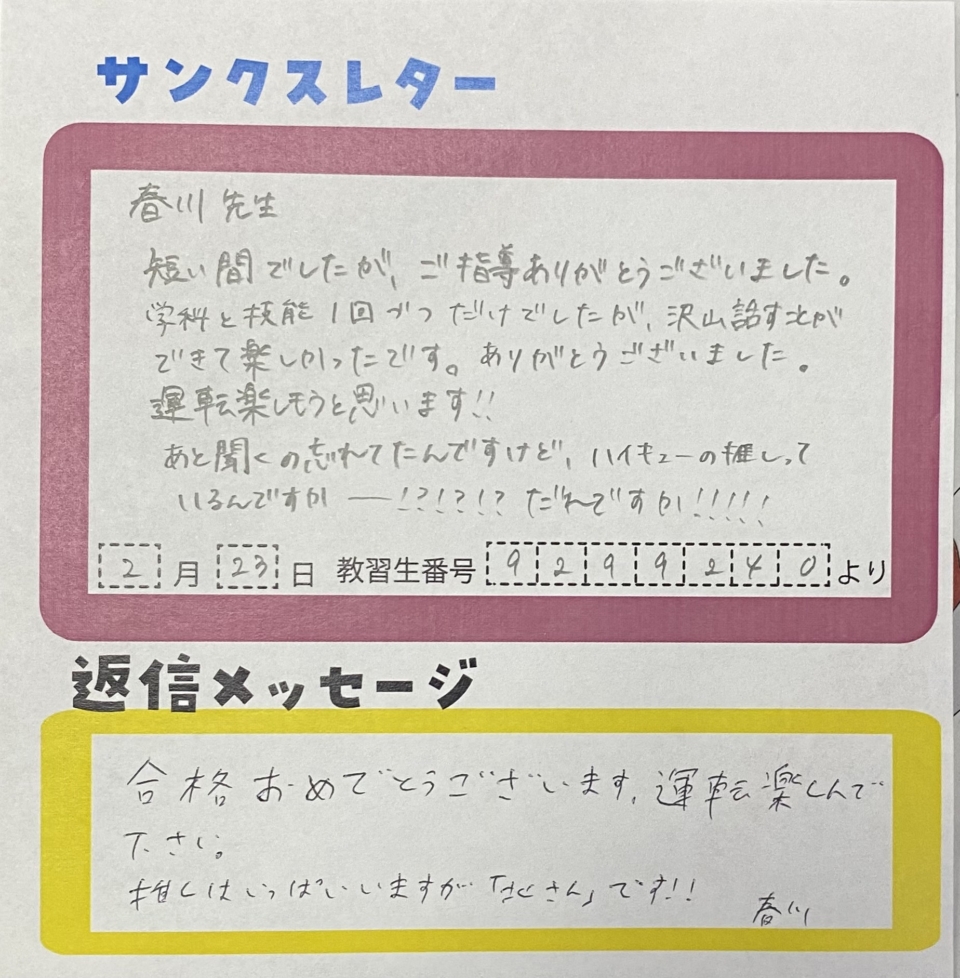 サンクスレター
春川 先生
短い間でしたが、ご指導ありがとうございました。
学科と技能1回づつだけでしたが、沢山話すことが
できて楽しかったです。ありがとうございました。
運転楽しもうと思います!!
あと聞くの忘れてたんですけど、ハイキューの推しって
いるんですか ――!?!?!? だれですか!!!!!
2 月 23 日 教習生番号 9299240 より
返信メッセージ
合格おめでとうございます。運転楽しんで
下さい。
推しはいっぱいいますが「さくさん」です!!
春川